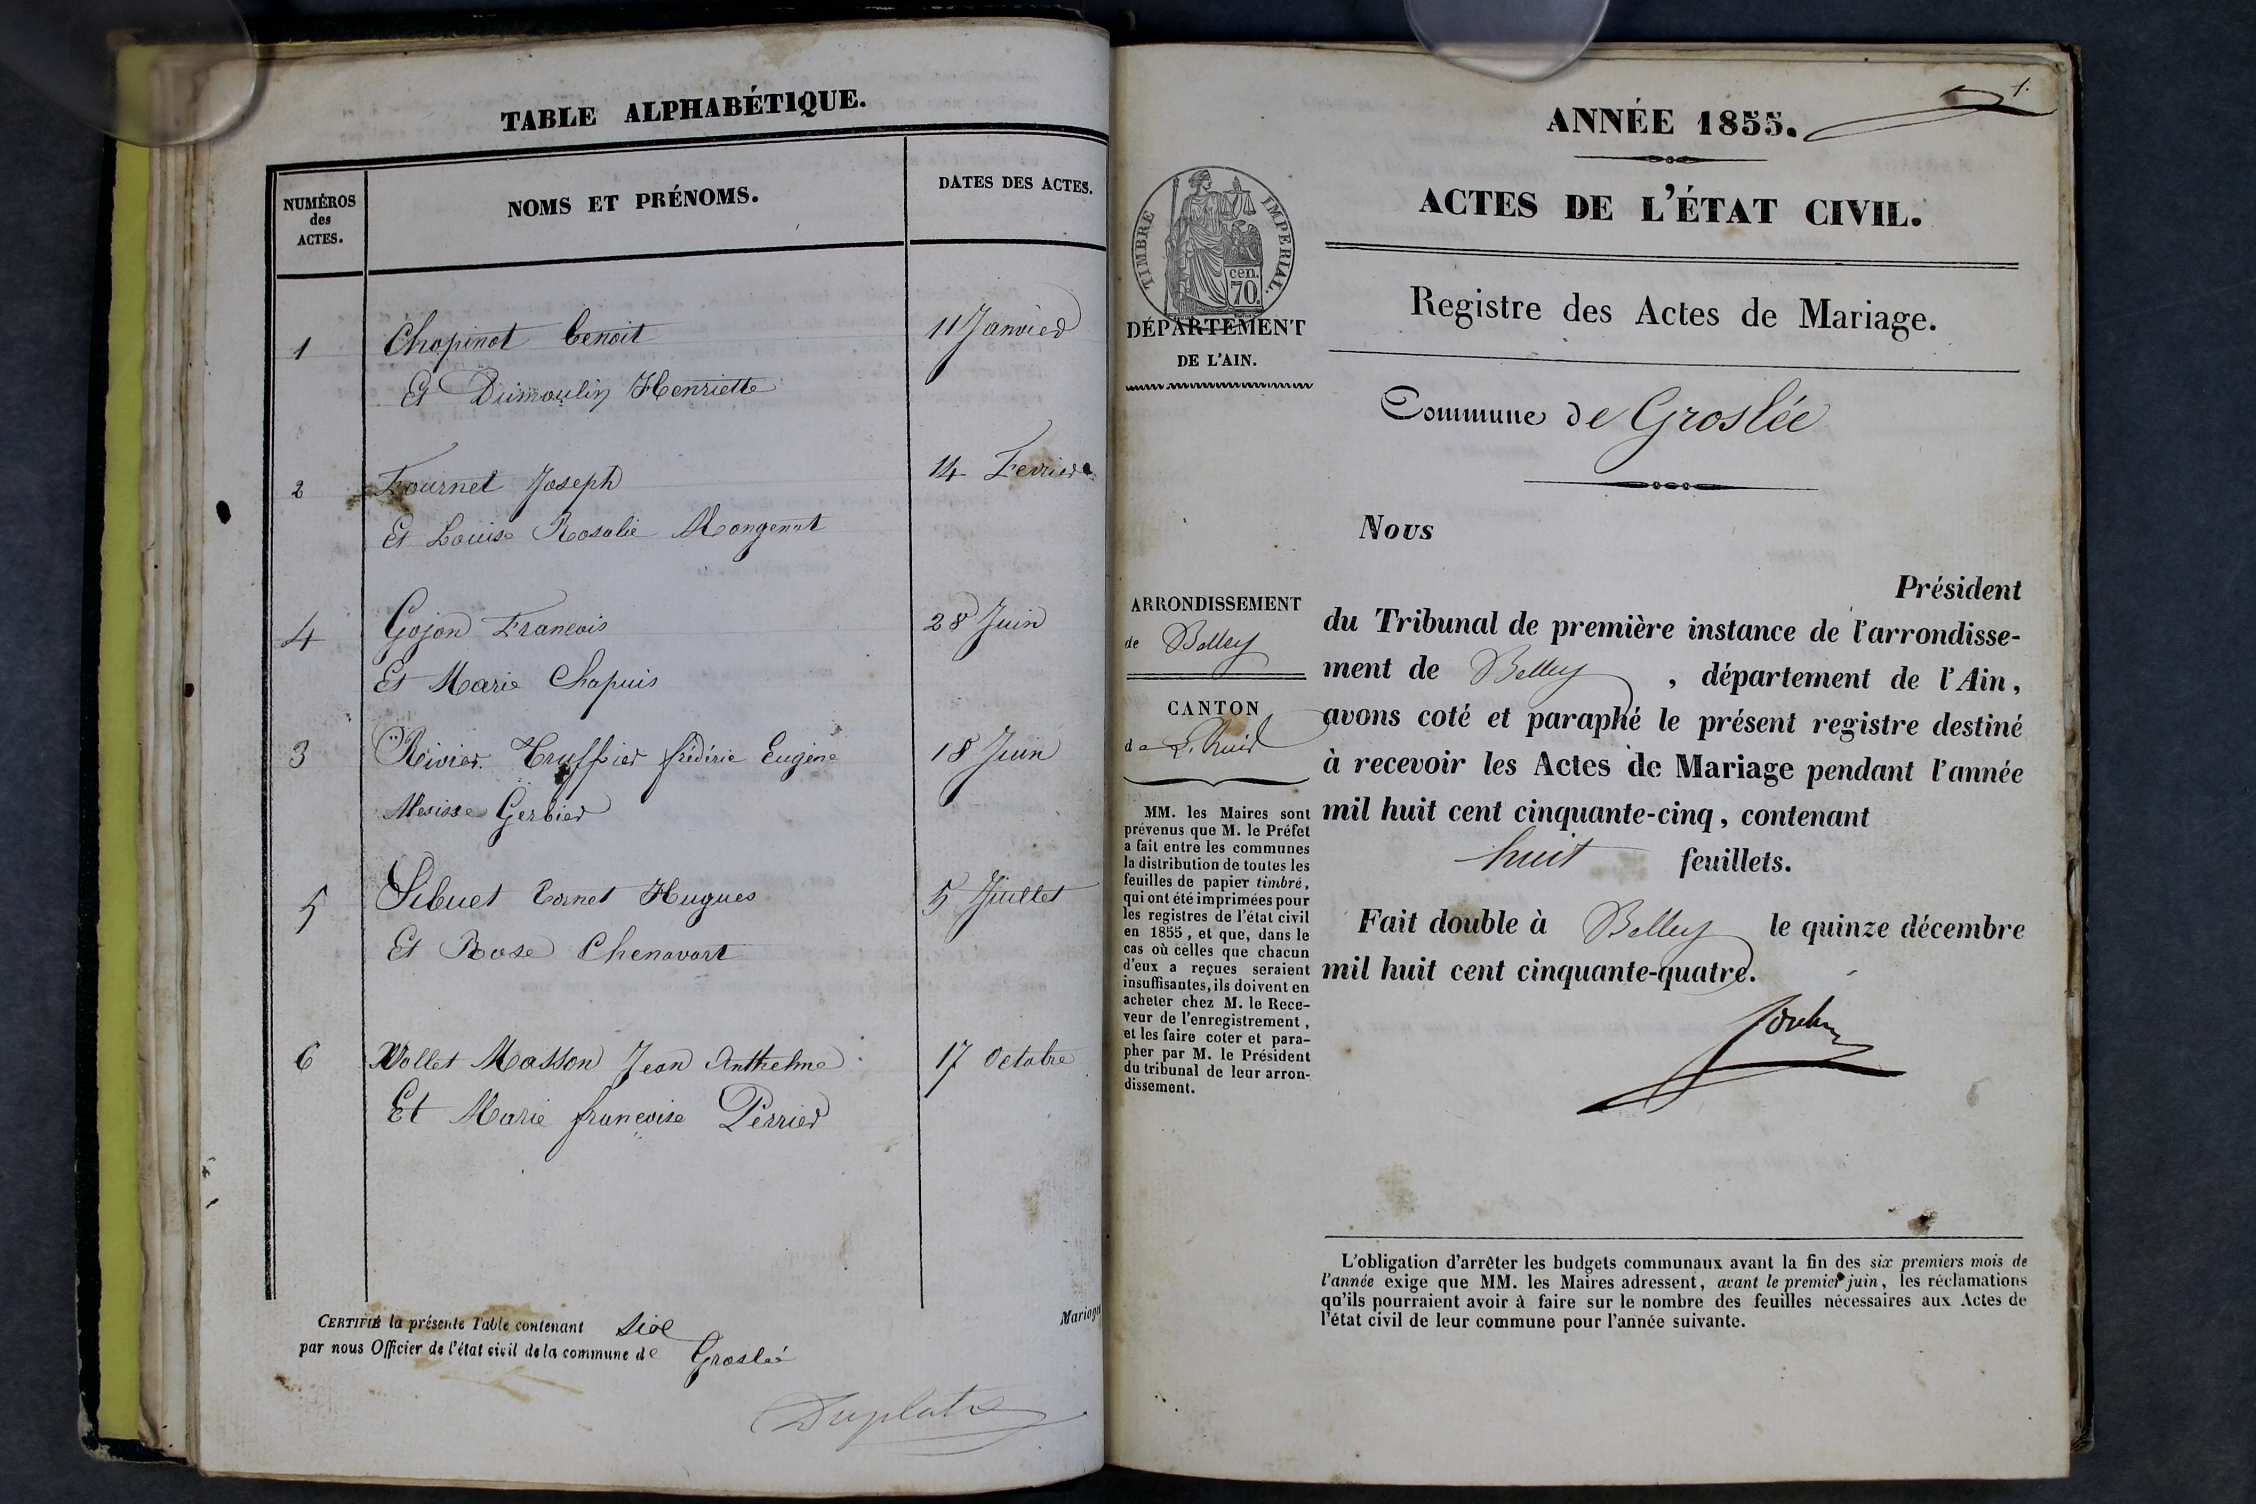 TABLE ALPHABÉTIQUE.
NUMÉROS
des
ACTES.
NOMS ET PRÉNOMS.
DATES DES ACTES.
1 Chapinot Benoit 11 Janvier
Et Dumoulin Henriette
2 Fournet Joseph 14 Fevrier
Et Louise Rosalie Mongenot
4 Gojon Francois 28 Juin
Et Marie Chapuis
3 Rivier Truffier frédéric Eugène 18 Juin
Gerbier
5 Sibuet Cornet Hugues 5 Juillet
Et Rose Chenavart
6 Vollet Masson Jean Anthelme 17 Octobre
Et Marie francoise Perrier
CERTIFIÉ la présente Table contenant six Mariages
par nous Officier de l'état civil de la commune de Groslée
Duplatre
1.
ANNÉE 1855.
ACTES DE L'ÉTAT CIVIL.
TIMBRE IMPERIAL.
cen.
70.
DÉPARTEMENT
DE L'AIN.
Registre des Actes de Mariage.
Commune de Groslée
Nous
Président
du Tribunal de première instance de l'arrondisse-
ment de Belley , département de l'Ain,
avons coté et paraphé le présent registre destiné
à recevoir les Actes de Mariage pendant l'année
mil huit cent cinquante-cinq, contenant
huit feuillets.
Fait double à Belley le quinze décembre
mil huit cent cinquante-quatre.
ARRONDISSEMENT
de Belley
CANTON
de L'huis
MM. les Maires sont
prévenus que M. le Préfet
a fait entre les communes
la distribution de toutes les
feuilles de papier timbré,
qui ont été imprimées pour
les registres de l'état civil
en 1855, et que, dans le
cas où celles que chacun
d'eux a reçues seraient
insuffisantes, ils doivent en
acheter chez M. le Rece-
veur de l'enregistrement,
et les faire coter et para-
pher par M. le Président
du tribunal de leur arron-
dissement.
L'obligation d'arrêter les budgets communaux avant la fin des six premiers mois de
l'année exige que MM. les Maires adressent, avant le premier juin, les réclamations
qu'ils pourraient avoir à faire sur le nombre des feuilles nécessaires aux Actes de
l'état civil de leur commune pour l'année suivante.